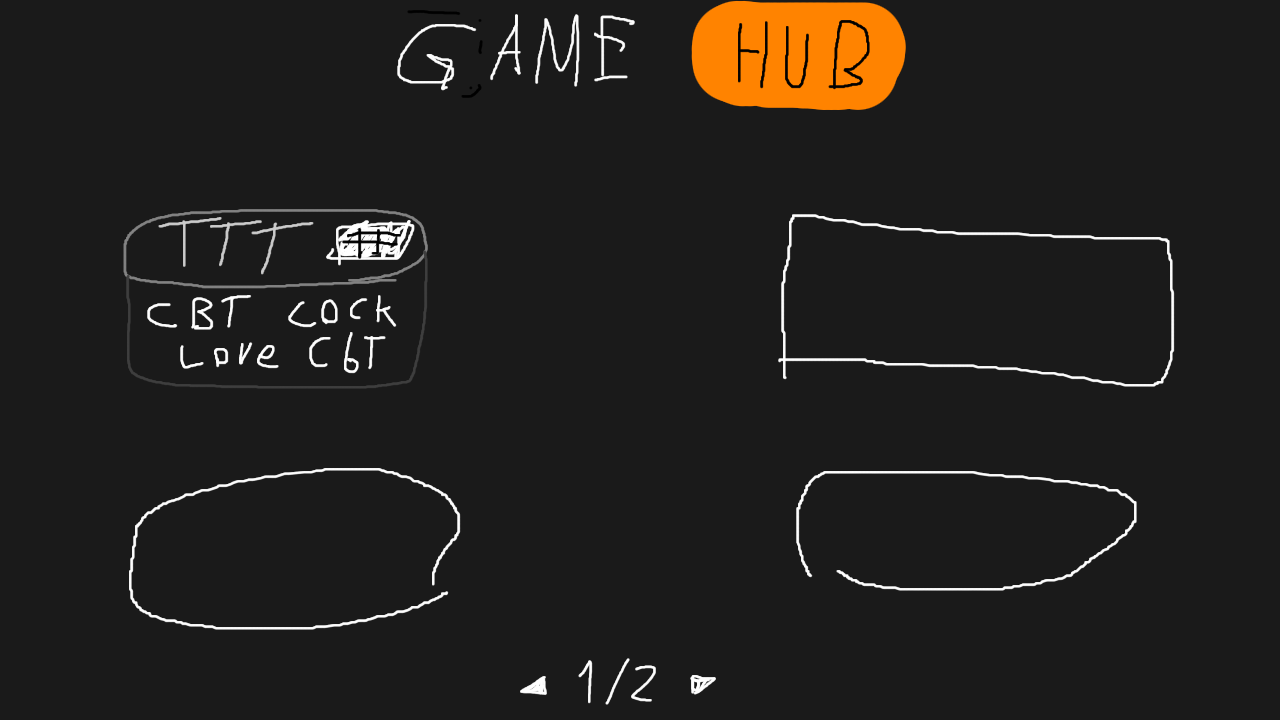 GAME HUB
TTT
CBT COCK
LOVE CBT
1/2